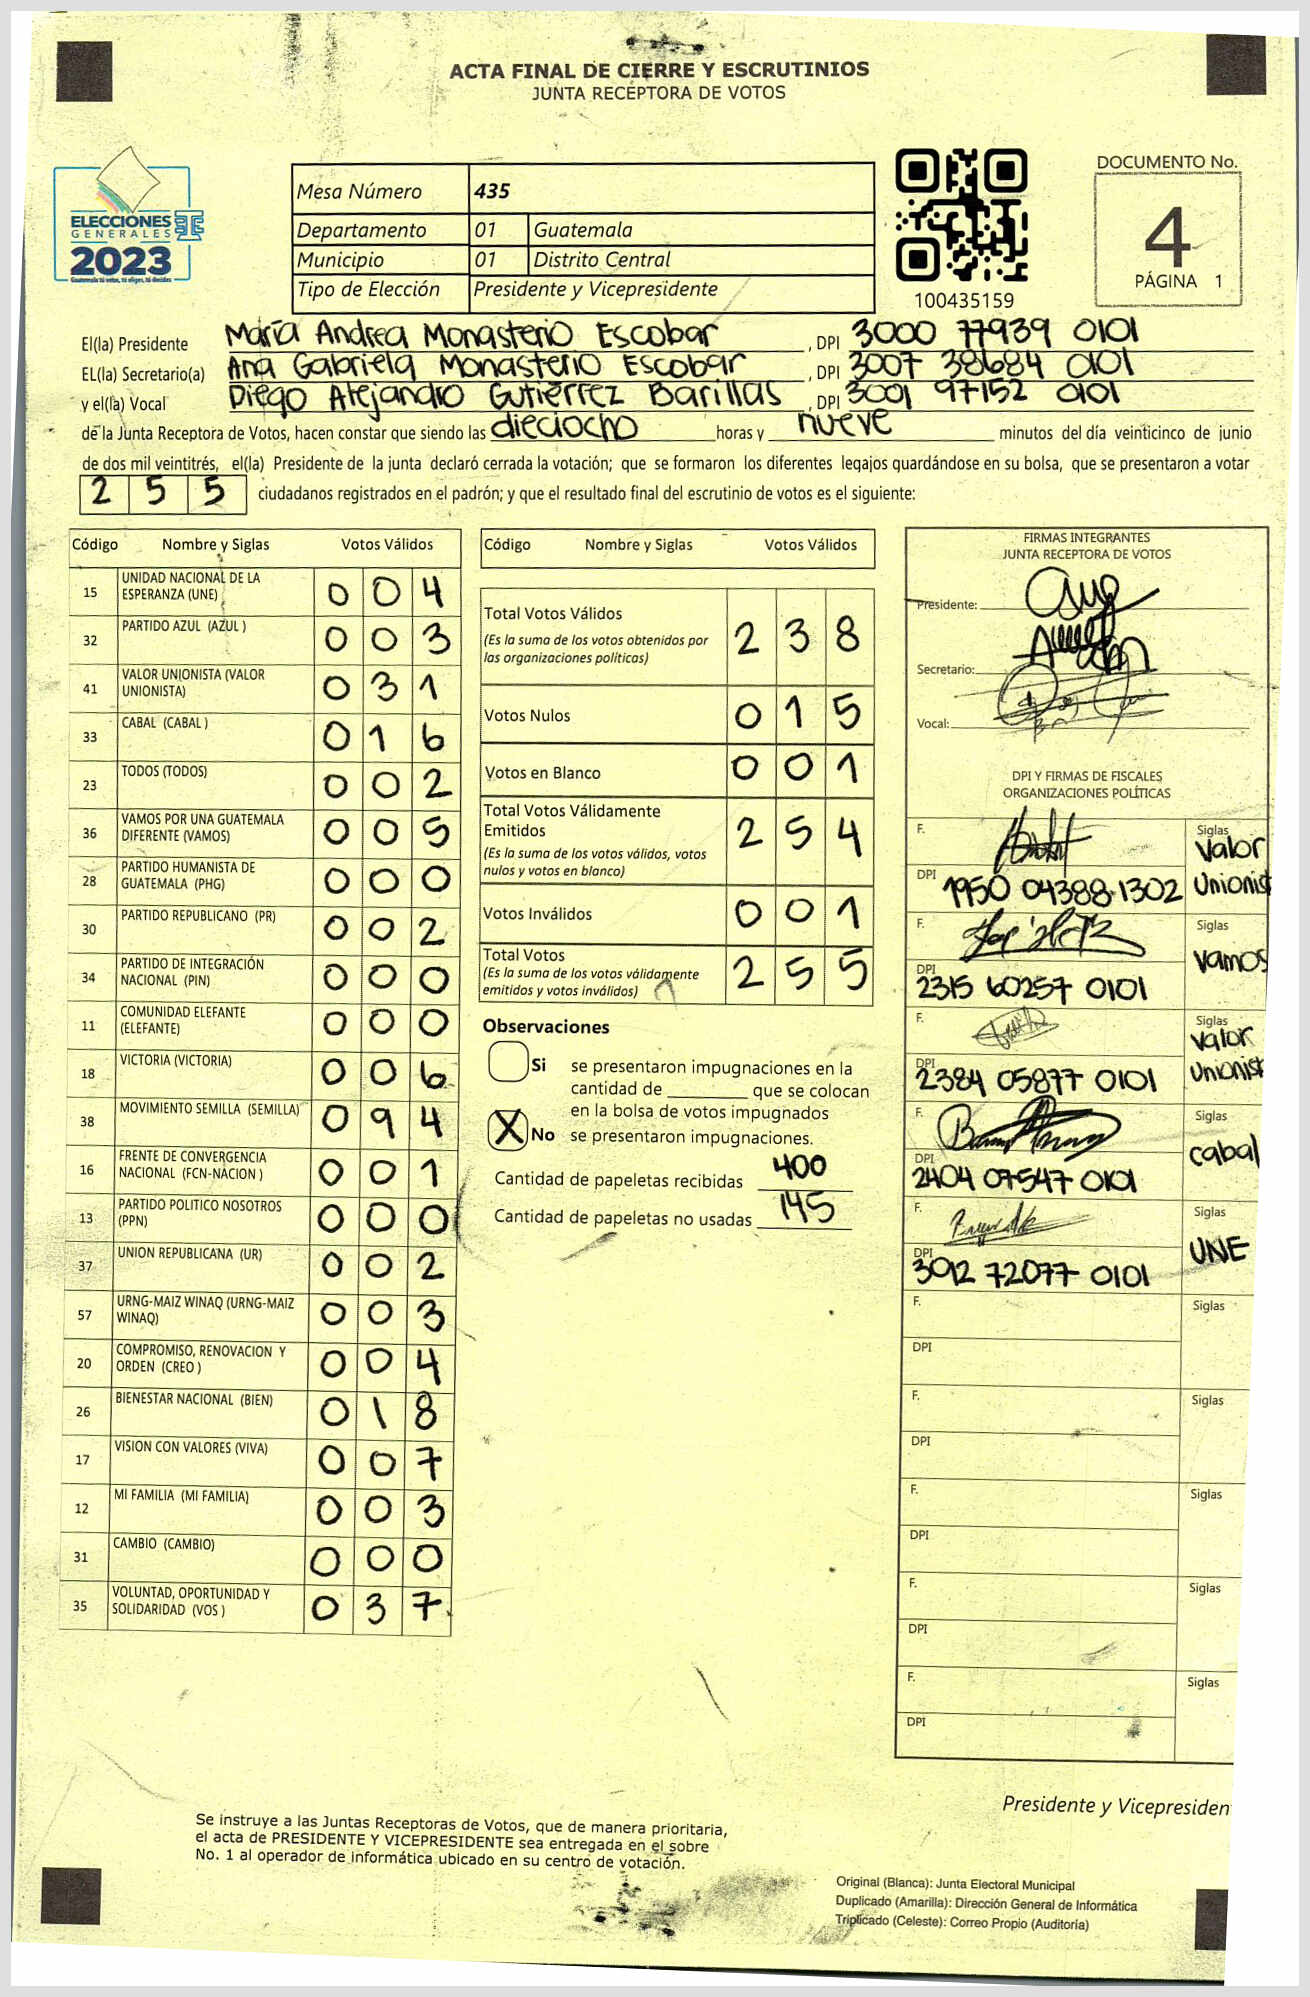 ACTA FINAL DE CIERRE Y ESCRUTINIOS
JUNTA RECEPTORA DE VOTOS
ELECCIONES
GENERALES
2023
Guatemala tú votas, tú eliges, tú decides
Mesa Número 435
Departamento 01 Guatemala
Municipio 01 Distrito Central
Tipo de Elección Presidente y Vicepresidente
100435159
DOCUMENTO No.
4
PÁGINA 1
El(la) Presidente María Andrea Monasterio Escobar , DPI 3000 77939 0101
EL(la) Secretario(a) Ana Gabriela Monasterio Escobar , DPI 3007 38684 0101
y el(la) Vocal Diego Alejandro Gutiérrez Barillas , DPI 3001 97152 0101
de la Junta Receptora de Votos, hacen constar que siendo las dieciocho horas y nueve minutos del día veinticinco de junio
de dos mil veintitrés, el(la) Presidente de la junta declaró cerrada la votación; que se formaron los diferentes legajos guardándose en su bolsa, que se presentaron a votar
2 5 5 ciudadanos registrados en el padrón; y que el resultado final del escrutinio de votos es el siguiente:
Código Nombre y Siglas Votos Válidos
15 UNIDAD NACIONAL DE LA
ESPERANZA (UNE) 0 0 4
32 PARTIDO AZUL (AZUL ) 0 0 3
41 VALOR UNIONISTA (VALOR
UNIONISTA) 0 3 1
33 CABAL (CABAL ) 0 1 6
23 TODOS (TODOS) 0 0 2
36 VAMOS POR UNA GUATEMALA
DIFERENTE (VAMOS) 0 0 5
28 PARTIDO HUMANISTA DE
GUATEMALA (PHG) 0 0 0
30 PARTIDO REPUBLICANO (PR) 0 0 2
34 PARTIDO DE INTEGRACIÓN
NACIONAL (PIN) 0 0 0
11 COMUNIDAD ELEFANTE
(ELEFANTE) 0 0 0
18 VICTORIA (VICTORIA) 0 0 6
38 MOVIMIENTO SEMILLA (SEMILLA) 0 9 4
16 FRENTE DE CONVERGENCIA
NACIONAL (FCN-NACION ) 0 0 1
13 PARTIDO POLITICO NOSOTROS
(PPN) 0 0 0
37 UNION REPUBLICANA (UR) 0 0 2
57 URNG-MAIZ WINAQ (URNG-MAIZ
WINAQ) 0 0 3
20 COMPROMISO, RENOVACION Y
ORDEN (CREO ) 0 0 4
26 BIENESTAR NACIONAL (BIEN) 0 1 8
17 VISION CON VALORES (VIVA) 0 0 7
12 MI FAMILIA (MI FAMILIA) 0 0 3
31 CAMBIO (CAMBIO) 0 0 0
35 VOLUNTAD, OPORTUNIDAD Y
SOLIDARIDAD (VOS ) 0 3 7
Código Nombre y Siglas Votos Válidos
Total Votos Válidos
(Es la suma de los votos obtenidos por
las organizaciones políticas) 2 3 8
Votos Nulos 0 1 5
Votos en Blanco 0 0 1
Total Votos Válidamente
Emitidos
(Es la suma de los votos válidos, votos
nulos y votos en blanco) 2 5 4
Votos Inválidos 0 0 1
Total Votos
(Es la suma de los votos válidamente
emitidos y votos inválidos) 2 5 5
Observaciones
Si se presentaron impugnaciones en la
cantidad de ________ que se colocan
en la bolsa de votos impugnados
X No se presentaron impugnaciones.
Cantidad de papeletas recibidas 400
Cantidad de papeletas no usadas 145
FIRMAS INTEGRANTES
JUNTA RECEPTORA DE VOTOS
Presidente:
Secretario:
Vocal:
DPI Y FIRMAS DE FISCALES
ORGANIZACIONES POLÍTICAS
F. Siglas
Valor
DPI 1950 04388 1302 Unionist
F. Siglas
Vamos
DPI 2315 60257 0101
F. Siglas
Valor
DPI 2384 05877 0101 Unionist
F. Siglas
cabal
DPI 2404 07547 0101
F. Siglas
UNE
DPI 3012 72077 0101
F. Siglas
DPI
F. Siglas
DPI
F. Siglas
DPI
F. Siglas
DPI
F. Siglas
DPI
Presidente y Vicepresiden
Se instruye a las Juntas Receptoras de Votos, que de manera prioritaria,
el acta de PRESIDENTE Y VICEPRESIDENTE sea entregada en el sobre
No. 1 al operador de informática ubicado en su centro de votación.
Original (Blanca): Junta Electoral Municipal
Duplicado (Amarilla): Dirección General de Informática
Triplicado (Celeste): Correo Propio (Auditoría)